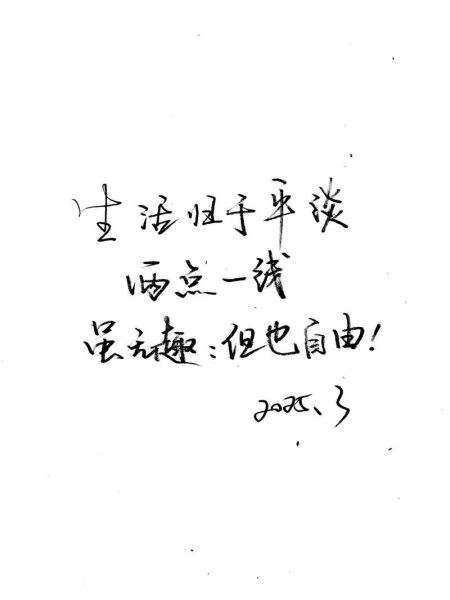 生活归于平淡
两点一线
虽无趣：但也自由！
2025、3